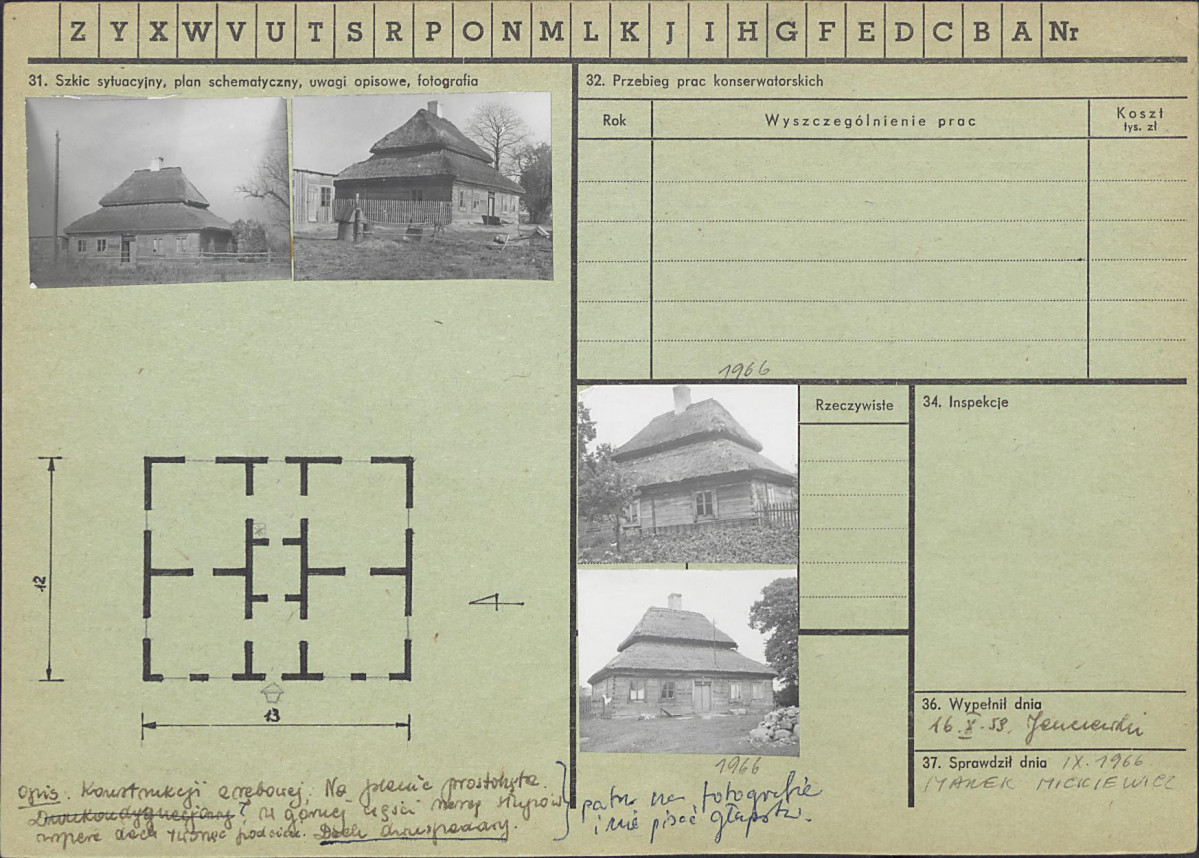 Z Y X W V U T S R P O N M L K J I H G F E D C B A Nr
31. Szkic sytuacyjny, plan schematyczny, uwagi opisowe, fotografia
32. Przebieg prac konserwatorskich
Rok
Wyszczególnienie prac
Koszt
tys. zł
1966
Rzeczywiste
34. Inspekcje
12
13
36. Wypełnił dnia
16.X.59.
37. Sprawdził dnia IX.1966
MAREK MICKIEWICZ
1966
opis. Konstrukcji zrębowej. Na planie prostokąta.
Dwukondygnacjowy? W górnej części szereg słupów
wspiera dach tworząc podcień. Dach dwuspadowy.
patrz na fotografie
i nie pisać głupstw.